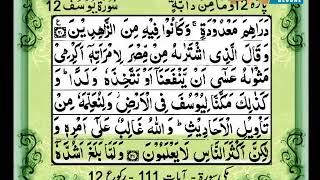 پارہ 12 وما من دآبة
سورة يوسف 12
دَرَاهِمَ مَعْدُوْدَةٍ ۚ وَكَانُوْا فِيْهِ مِنَ الزَّاهِدِيْنَ
وَقَالَ الَّذِى اشْتَرٰىهُ مِنْ مِّصْرَ لِامْرَاَتِهٖۤ اَكْرِمِىْ
مَثْوٰىهُ عَسٰٓى اَنْ يَّنْفَعَنَاۤ اَوْ نَتَّخِذَهٗ وَلَدًا ؕ وَ
كَذٰلِكَ مَكَّنَّا لِيُوْسُفَ فِى الْاَرْضِ وَلِنُعَلِّمَهٗ مِنْ
تَاْوِيْلِ الْاَحَادِيْثِ ؕ وَاللّٰهُ غَالِبٌ عَلٰٓى اَمْرِهٖ وَ
لٰكِنَّ اَكْثَرَ النَّاسِ لَا يَعْلَمُوْنَ وَلَمَّا بَلَغَ اَشُدَّهٗۤ
مکی سورۃ - آیات 111 - رکوع 12